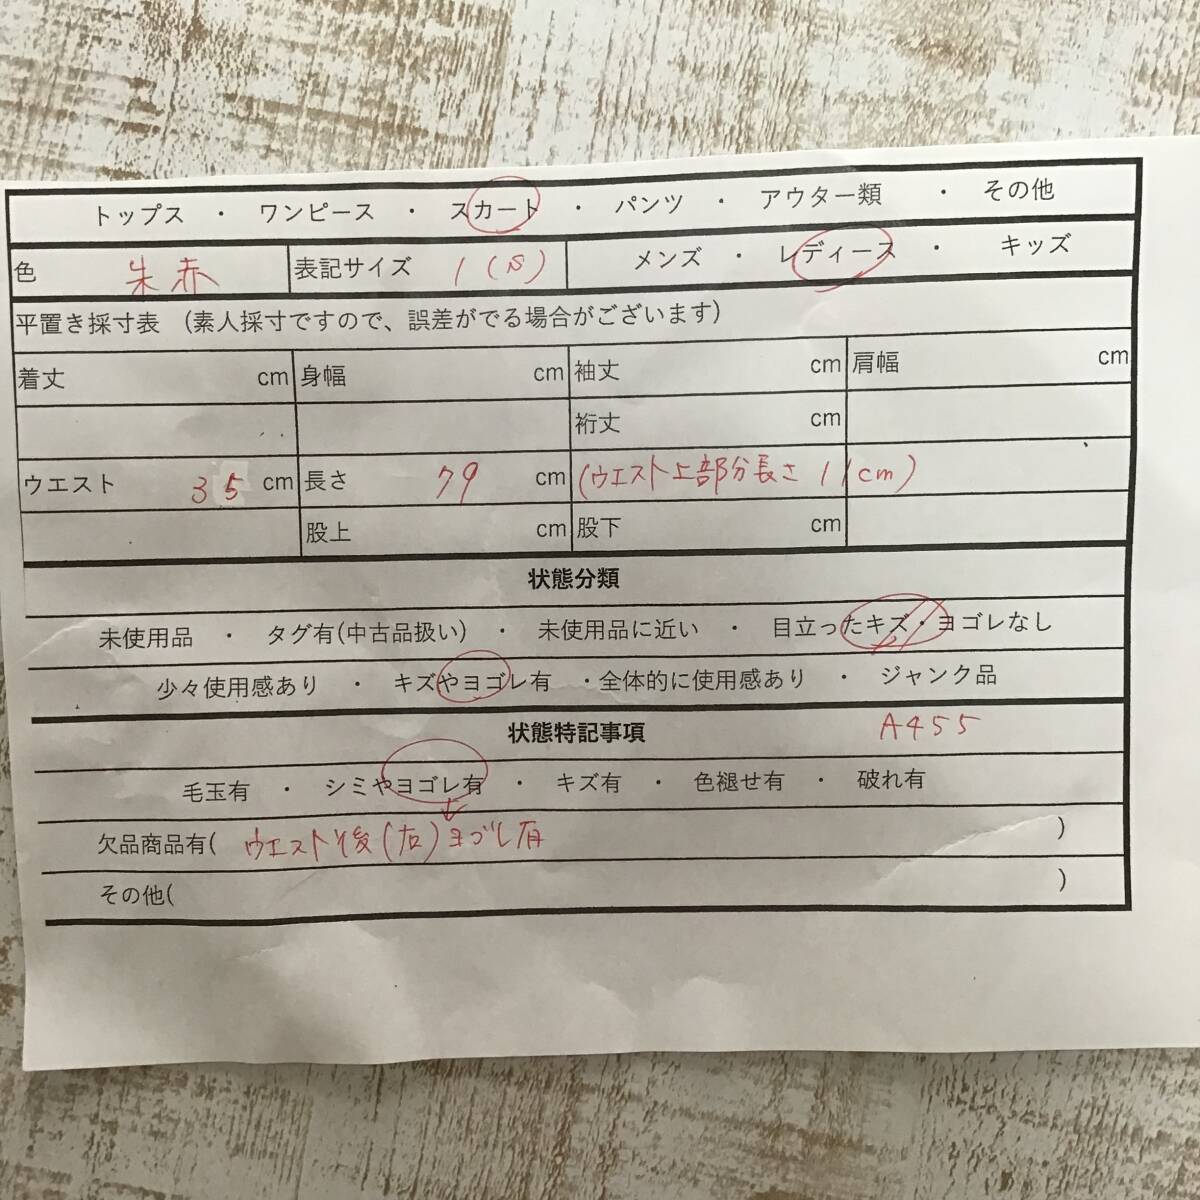 トップス ・ ワンピース ・ スカート ・ パンツ ・ アウター類 ・ その他
色 朱赤 表記サイズ 1(S) メンズ ・ レディース ・ キッズ
平置き採寸表 (素人採寸ですので、誤差がでる場合がございます)
着丈 cm 身幅 cm 袖丈 cm 肩幅 cm
裄丈 cm
ウエスト 35 cm 長さ 79 cm (ウエスト上部分長さ 11cm)
股上 cm 股下 cm
状態分類
未使用品 ・ タグ有(中古品扱い) ・ 未使用品に近い ・ 目立ったキズ・ヨゴレなし
少々使用感あり ・ キズやヨゴレ有 ・全体的に使用感あり ・ ジャンク品
状態特記事項 A455
毛玉有 ・ シミやヨゴレ有 ・ キズ有 ・ 色褪せ有 ・ 破れ有
欠品商品有( ウエスト後(右)ヨゴレ有 )
その他( )